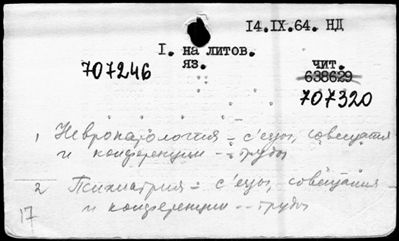 14.IX.64. НД
I. на литов.
707246 яз. чит.
638629
707320
1 Невропатология = с'езды, совещания
и конференции -- труды
2 Психиатрия = с'езды, совещания
и конференции -- труды
17